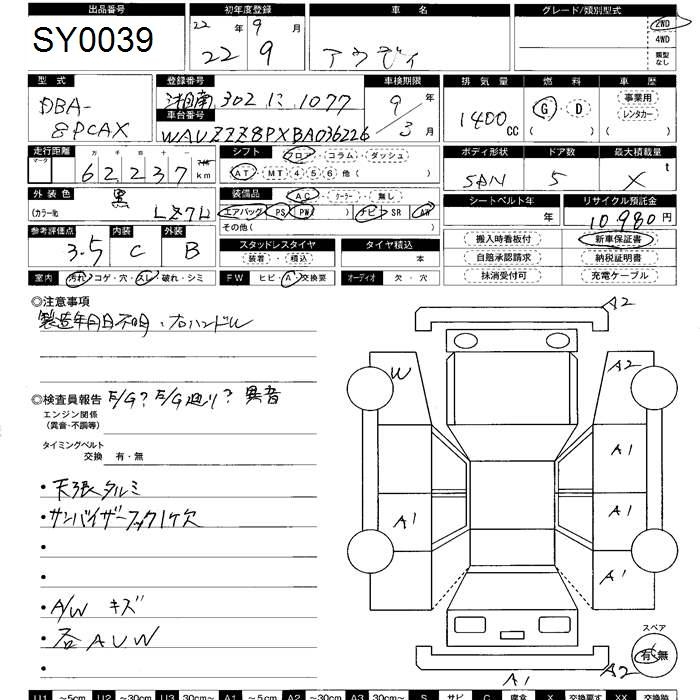 出品番号 初年度登録 車名 グレード/類別型式
SY0039 22年 9月 2WD
22 9 アウディ 4WD
類型なし
型式 登録番号 車検期限 排気量 燃料 車歴
DBA- 湘南 302 に 1077 9年 1400cc G・D 事業用
8PCAX 車台番号 3月 ( ) レンタカー
WAUZZZ8PXBA036226 ( )
走行距離 シフト フロア・コラム・ダッシュ ボディ形状 ドア数 最大積載量
マーク 万 千 百 十 一
62237 km AT・MT 4 5 6 他( ) SDN 5 X t
外装色 黒 装備品 AC・クーラー・無し シートベルト年 リサイクル預託金
(カラー№ LZ7L エアバッグ PS PW( )ナビ SR AW 年 10980円
その他( )
参考評価点 内装 外装 搬入時看板付 新車保証書
3.5 C B スタッドレスタイヤ タイヤ積込 自賠承認請求 納税証明書
装着・積込 本 抹消受付可 充電ケーブル
室内 汚れ・コゲ・穴・スレ・破れ・シミ FW ヒビ・A・交換要 オーディオ 欠・穴
◎注意事項 A2
製造年月日不明・右ハンドル
W A2
◎検査員報告 E/G? E/G廻り? 異音
エンジン関係
(異音・不調等)
タイミングベルト A1
交換 有・無
・天張タルミ
・サンバイザーフック1ケ欠 A1 A1
・
・ A1
・A/W キズ
・各AUW
スペア
・ 有・無
A1 A2
U1 ～5cm U2 ～30cm U3 30cm～ A1 ～5cm A2 ～30cm A3 30cm～ S サビ C 腐食 X 交換要す XX 交換跡